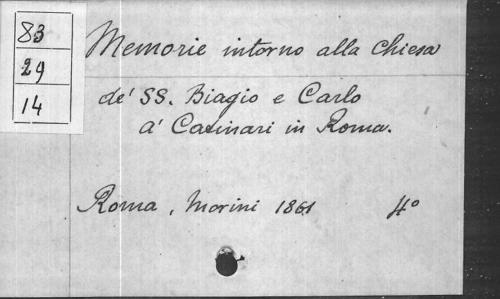 83
29
14
Memorie intorno alla Chiesa
de' SS. Biagio e Carlo
a' Catinari in Roma.
Roma, Morini 1861 4°